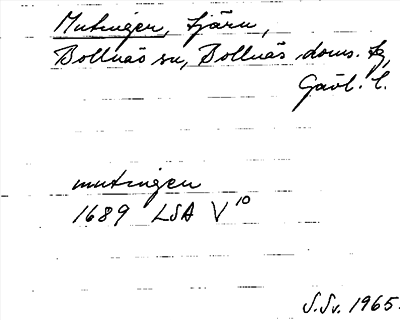 Mutingen, tjärn,
Bollnäs sn, Bollnäs doms. tg,
Gävl. l.
mutingen
1689 LSA V¹⁰
S.Sv. 1965.